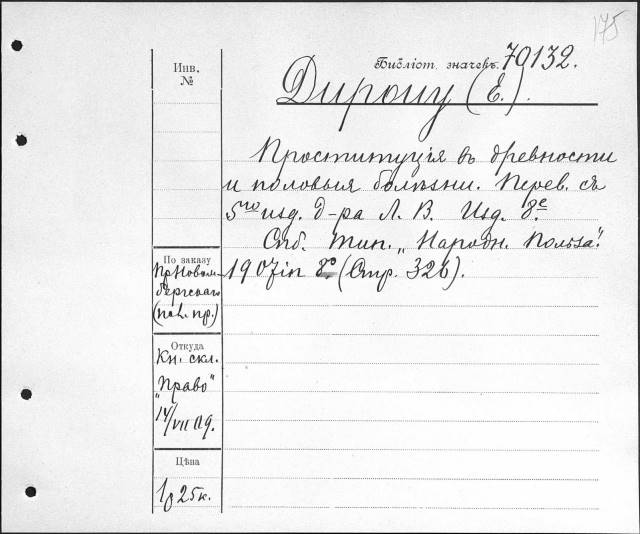 175
Библіот. значекъ. 70132.
Инв.
№
Дюпуи (Е.).
Проституція въ древности
и половыя болѣзни. Перев. съ
5го изд. д-ра Л. В. Изд. 2е.
Спб. Тип. „Народн. Польза".
1907 in 8° (Стр. 326).
По заказу
Пр. Новом-
бергскаго
(пол. пр.)
Откуда
Кн. скл.
„Право"
14/VII 09.
Цѣна
1 р 25 к.